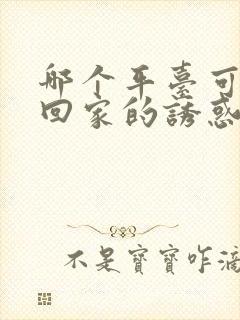 哪个平臺可
回家的誘惑
不是寶寶咋滴